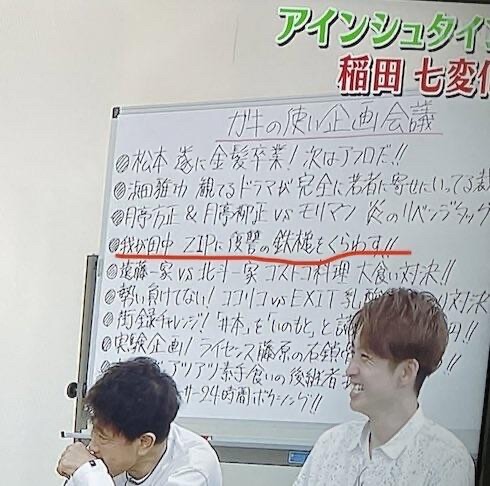 アインシュタイン
稲田 七変化
ガキの使い企画会議
◎松本 遂に金髪卒業！次はアフロだ!!
◎浜田雅功 観てるドラマが完全に若者に寄せにいってる
◎月亭方正 & 月亭 方正 vs モリマン 炎のリベンジタッグ
◎我が田中 ZIPに復讐の鉄槌をくらわす!!
◎遠藤一家 vs 北斗一家 コストコ料理 大食い対決!!
◎勢い負けてない！ココリコ vs EXIT 乳 対決
◎街録チャレンジ！「井本」を「いのもと」と 円!!
◎実験企画！ライセンス藤原の右鎖骨
アツアツ素手食いの後継者
24時間ボクシング!!